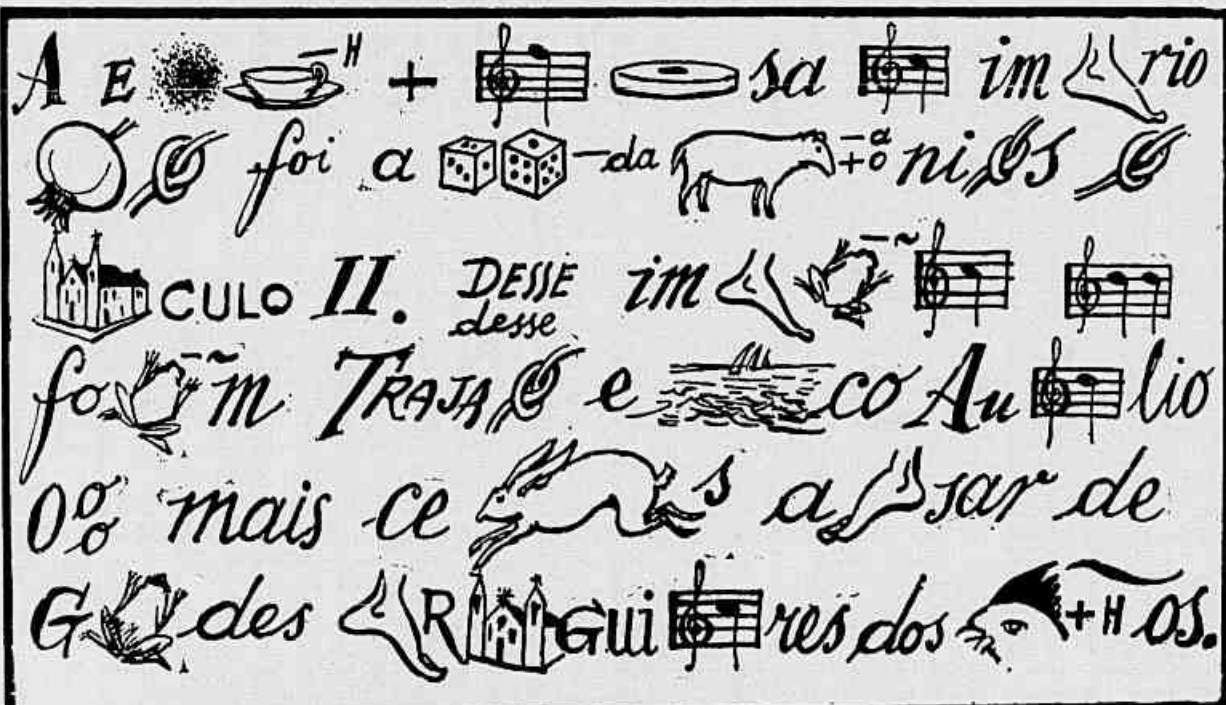 A E -H + sa im rio
foi a -da -a +o ni s
CULO II. DESSE desse im -~
fo -~ m TRAJA e co Au lio
mais ce s a sar de
G des R GUI res dos +H OS.